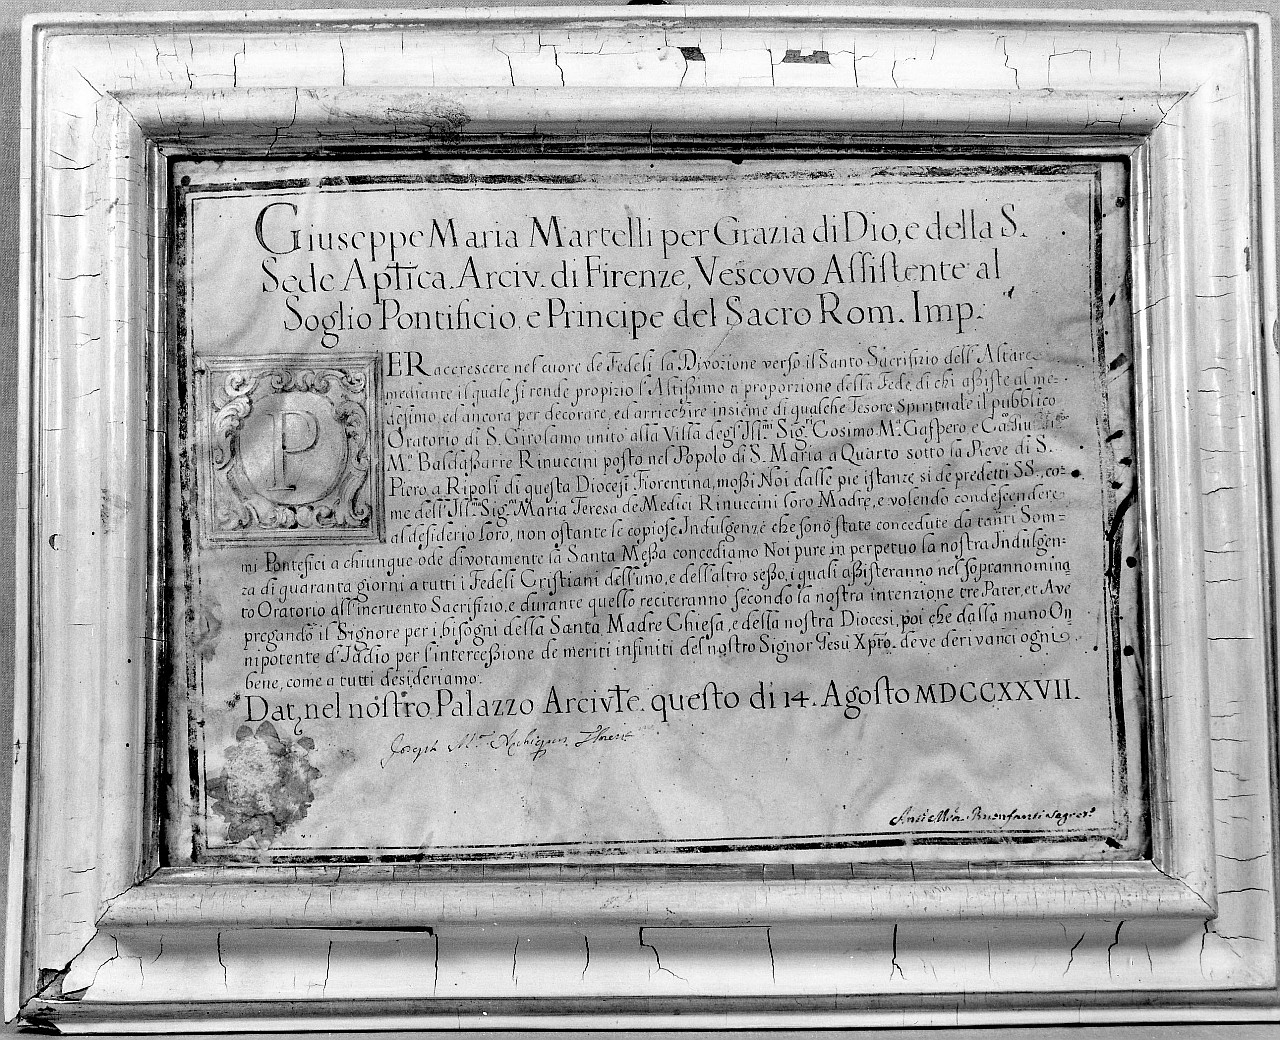 Giuseppe Maria Martelli per Grazia di Dio, e della S.
Sede Aptica. Arciv. di Firenze, Vescovo Assistente al
Soglio Pontificio, e Principe del Sacro Rom. Imp.
PER accrescere nel cuore de Fedeli la Divozione verso il Santo Sacrifizio dell'Altare
mediante il quale si rende propizio l'Altissimo a proporzione della Fede di chi assiste al me-
desimo, ed ancora per decorare, ed arricchire insieme di qualche Tesore Spirituale il pubblico
Oratorio di S. Girolamo unito alla Villa degl'Ill.mi Sig.ri Cosimo M.a Gaspero, e
M.a Baldassarre Rinuccini posto nel Popolo di S. Maria a Quarto sotto la Pieve di S.
Piero a Ripoli di questa Diocesi Fiorentina, mossi Noi dalle pie istanze si de predetti SS., co-
me dell'Ill.ma Sig.ra Maria Teresa de Medici Rinuccini loro Madre, e volendo condescendere
al desiderio loro, non ostante le copiose Indulgenze che sono state concedute da tanti Som-
mi Pontefici a chiunque ode divotamente la Santa Messa concediamo Noi pure in perpetuo la nostra Indulgen-
za di quaranta giorni a tutti i Fedeli Cristiani dell'uno, e dell'altro sesso, i quali assisteranno nel soprannomina
to Oratorio all'incruento Sacrifizio, e durante quello reciteranno secondo la nostra intenzione tre Pater, et Ave
pregando il Signore per i bisogni della Santa Madre Chiesa, e della nostra Diocesi, poi che dalla mano On
nipotente d'Iddio per l'intercessione de meriti infiniti del nostro Signor Gesu Xpto. deve derivarci ogni
bene, come a tutti desideriamo.
Dat, nel nostro Palazzo Arcivte. questo di 14. Agosto MDCCXXVII.
Joseph M.a Archiepus Floren.
Ant.o M.a Buonfanti Segret.o